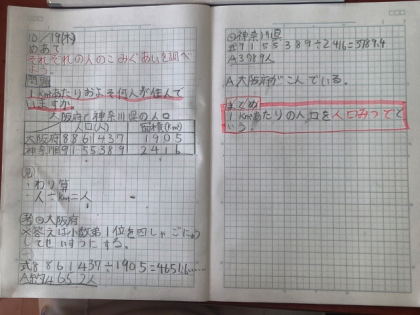 10/19(木)
めあて
それぞれの人のこみぐあいを調べ
よう。
問題
1km²あたりおよそ何人が住んで
いますか。
大阪府と神奈川県の人口
人口(人) 面積(km²)
大阪府 8861437 1905
神奈川県 9155389 2416
見
・わり算
・人÷km²=人
考 ①大阪府
※答えは小数第1位を四しゃごにゅう
してせいすうにする。
式8861437÷1905=4651.6……
A.約4652人
②神奈川県
式9155389÷2416=3789.4
A.3789人
A.大阪府がこんでいる。
まとめ
1km²あたりの人口を人口みつどと
いう。